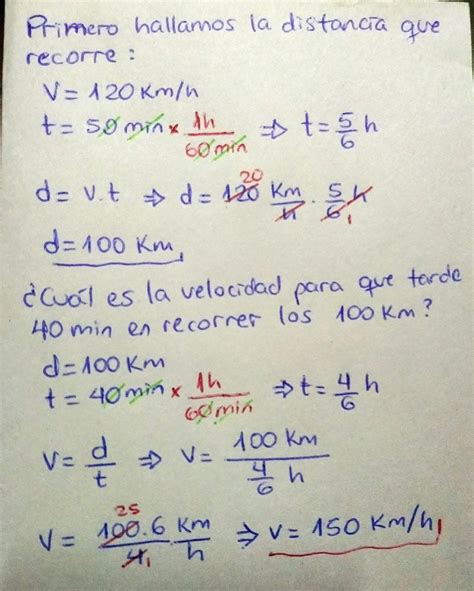 Primero hallamos la distancia que
recorre:
V = 120 Km/h
t = 50 min × 1h/60 min ⇒ t = 5/6 h
d = v.t ⇒ d = 120 20 Km/h . 5/6 1 h
d = 100 Km
¿Cuál es la velocidad para que tarde
40 min en recorrer los 100 Km?
d = 100 Km
t = 40 min × 1h/60 min ⇒ t = 4/6 h
V = d/t ⇒ V = 100 Km / 4/6 h
V = 100 25 . 6 / 4 1 . Km/h ⇒ V = 150 Km/h